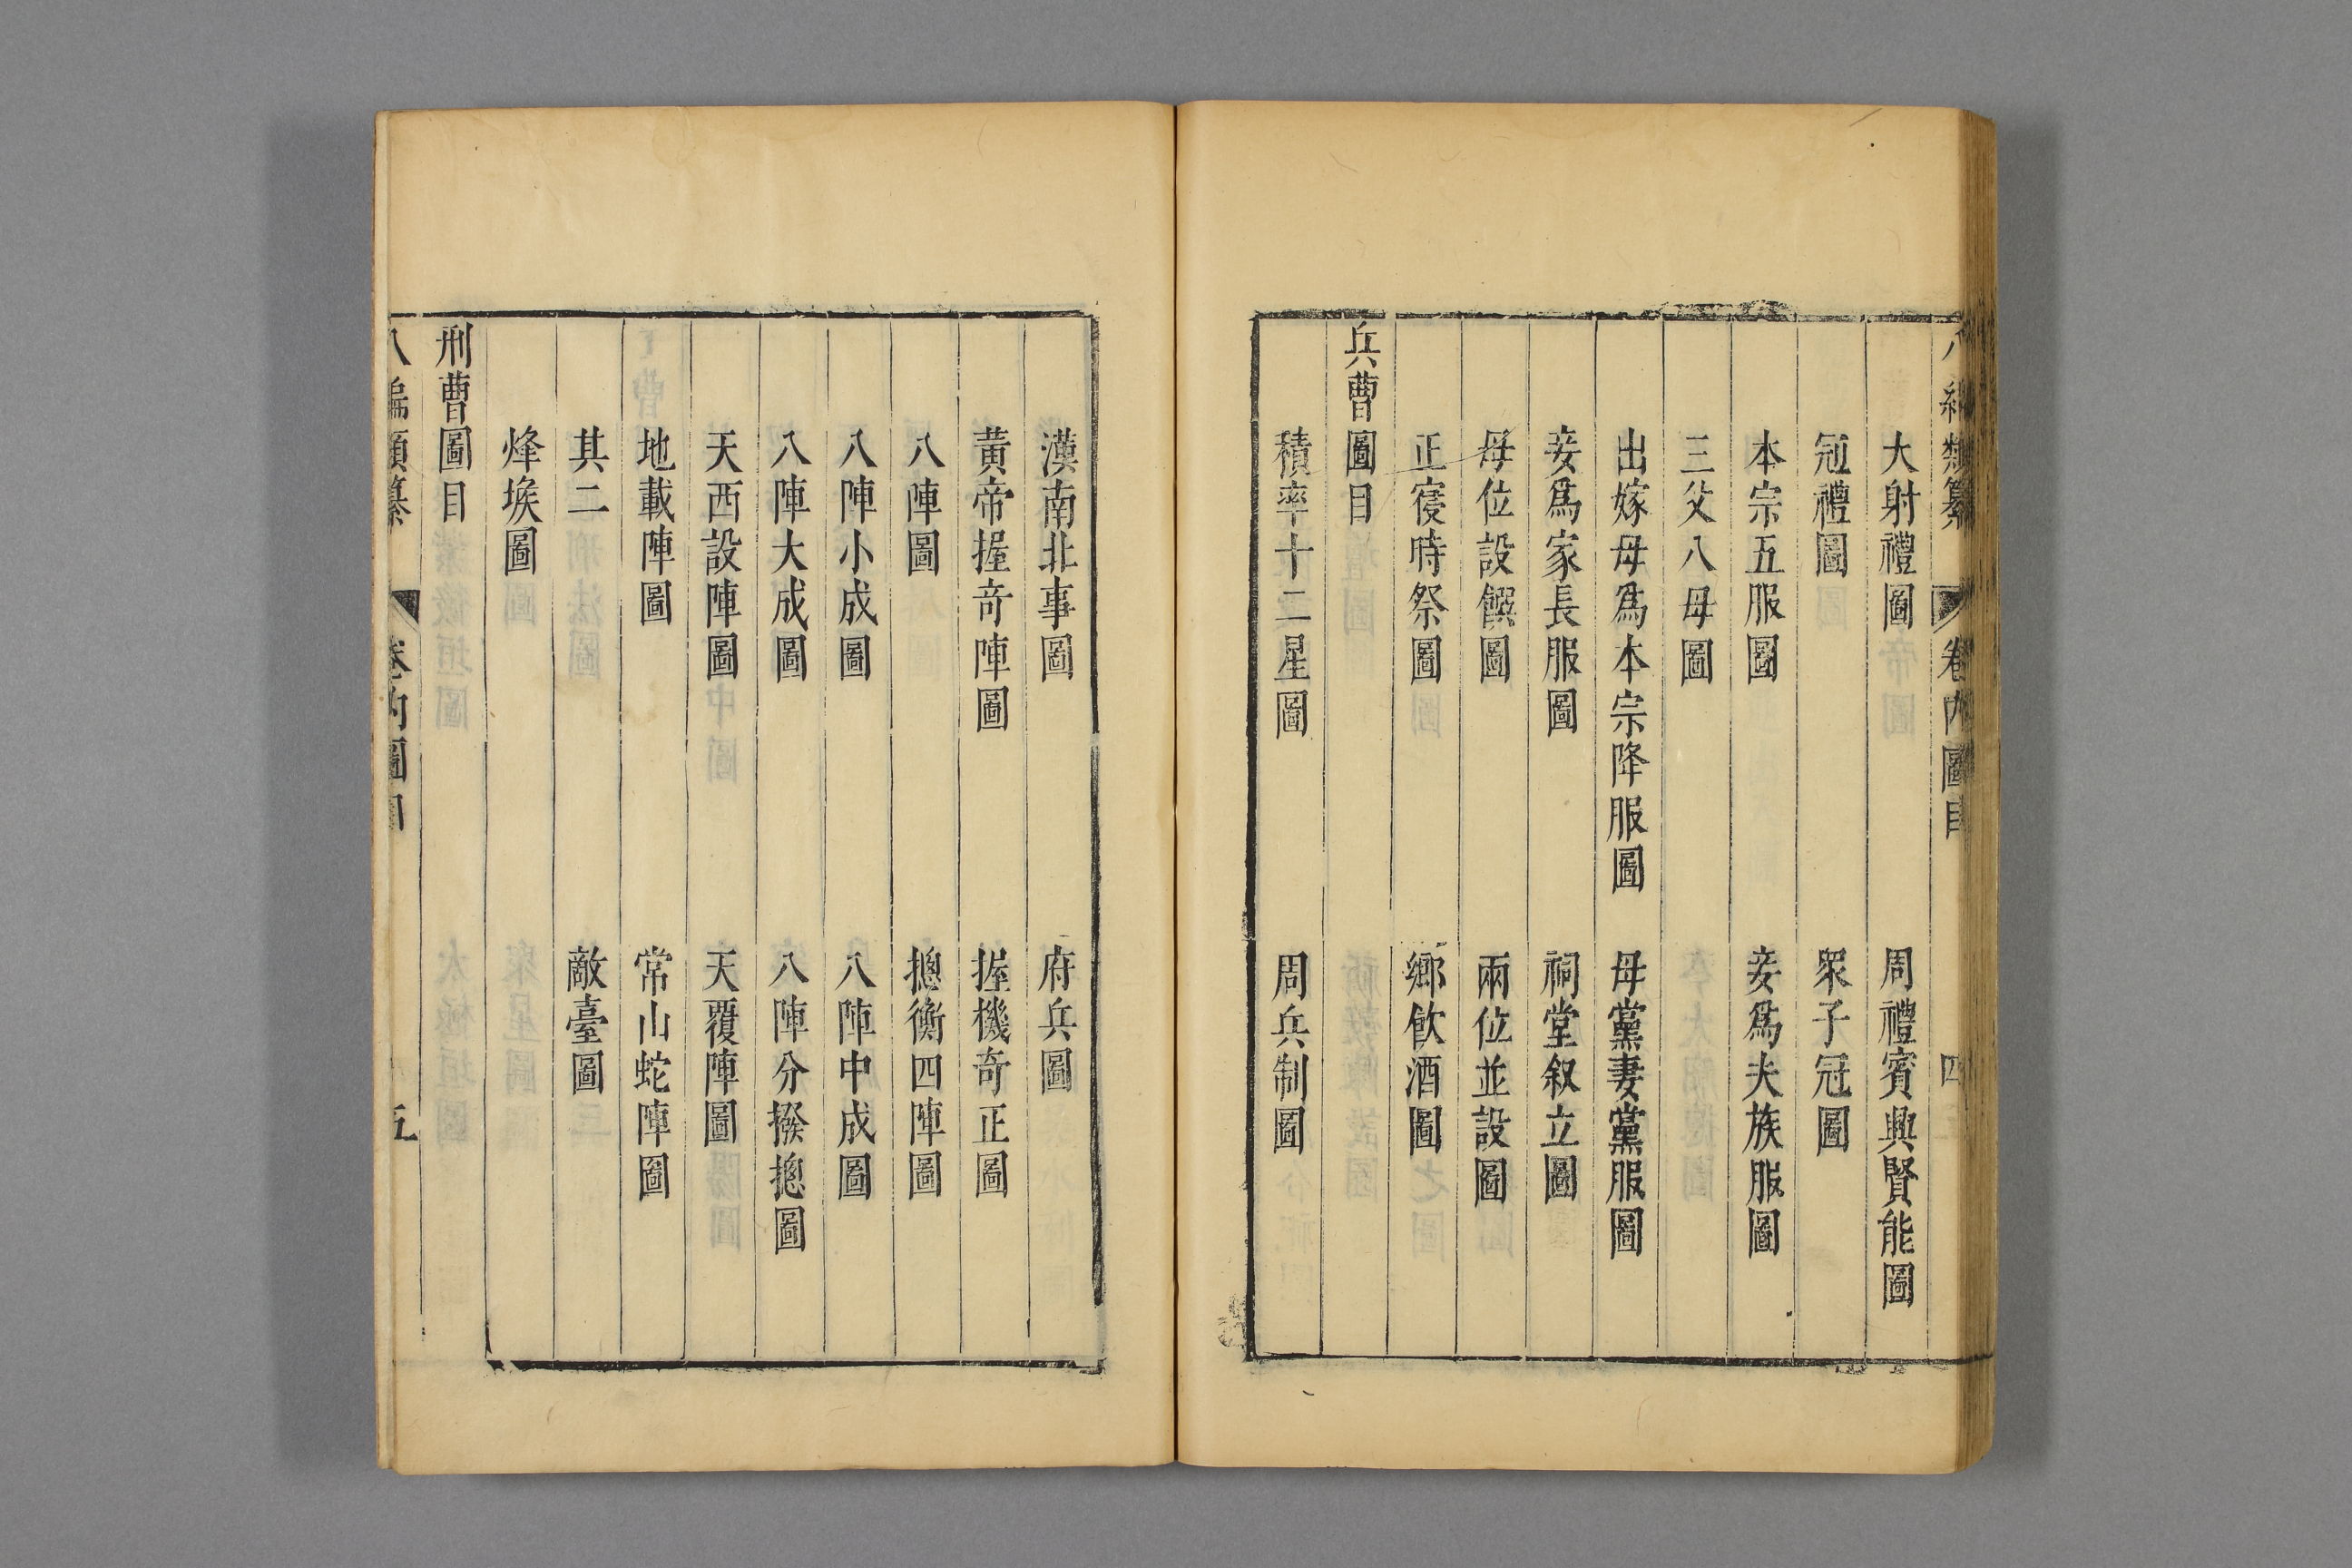 八編類纂 卷內圖目 四
大射禮圖 周禮賓興賢能圖
冠禮圖 眾子冠圖
本宗五服圖 妾爲夫族服圖
三父八母圖
出嫁母爲本宗降服圖 母黨妻黨服圖
妾爲家長服圖 祠堂叙立圖
母位設饌圖 兩位並設圖
正寑時祭圖 鄉飲酒圖
兵曹圖目
積卒十二星圖 周兵制圖
漢南北事圖 府兵圖
黃帝握奇陣圖 握機奇正圖
八陣圖 摠衡四陣圖
八陣小成圖 八陣中成圖
八陣大成圖 八陣分撥摠圖
天西設陣圖 天覆陣圖
地載陣圖 常山蛇陣圖
其二 敵臺圖
烽堠圖
刑曹圖目
八編類纂 卷內圖目 五